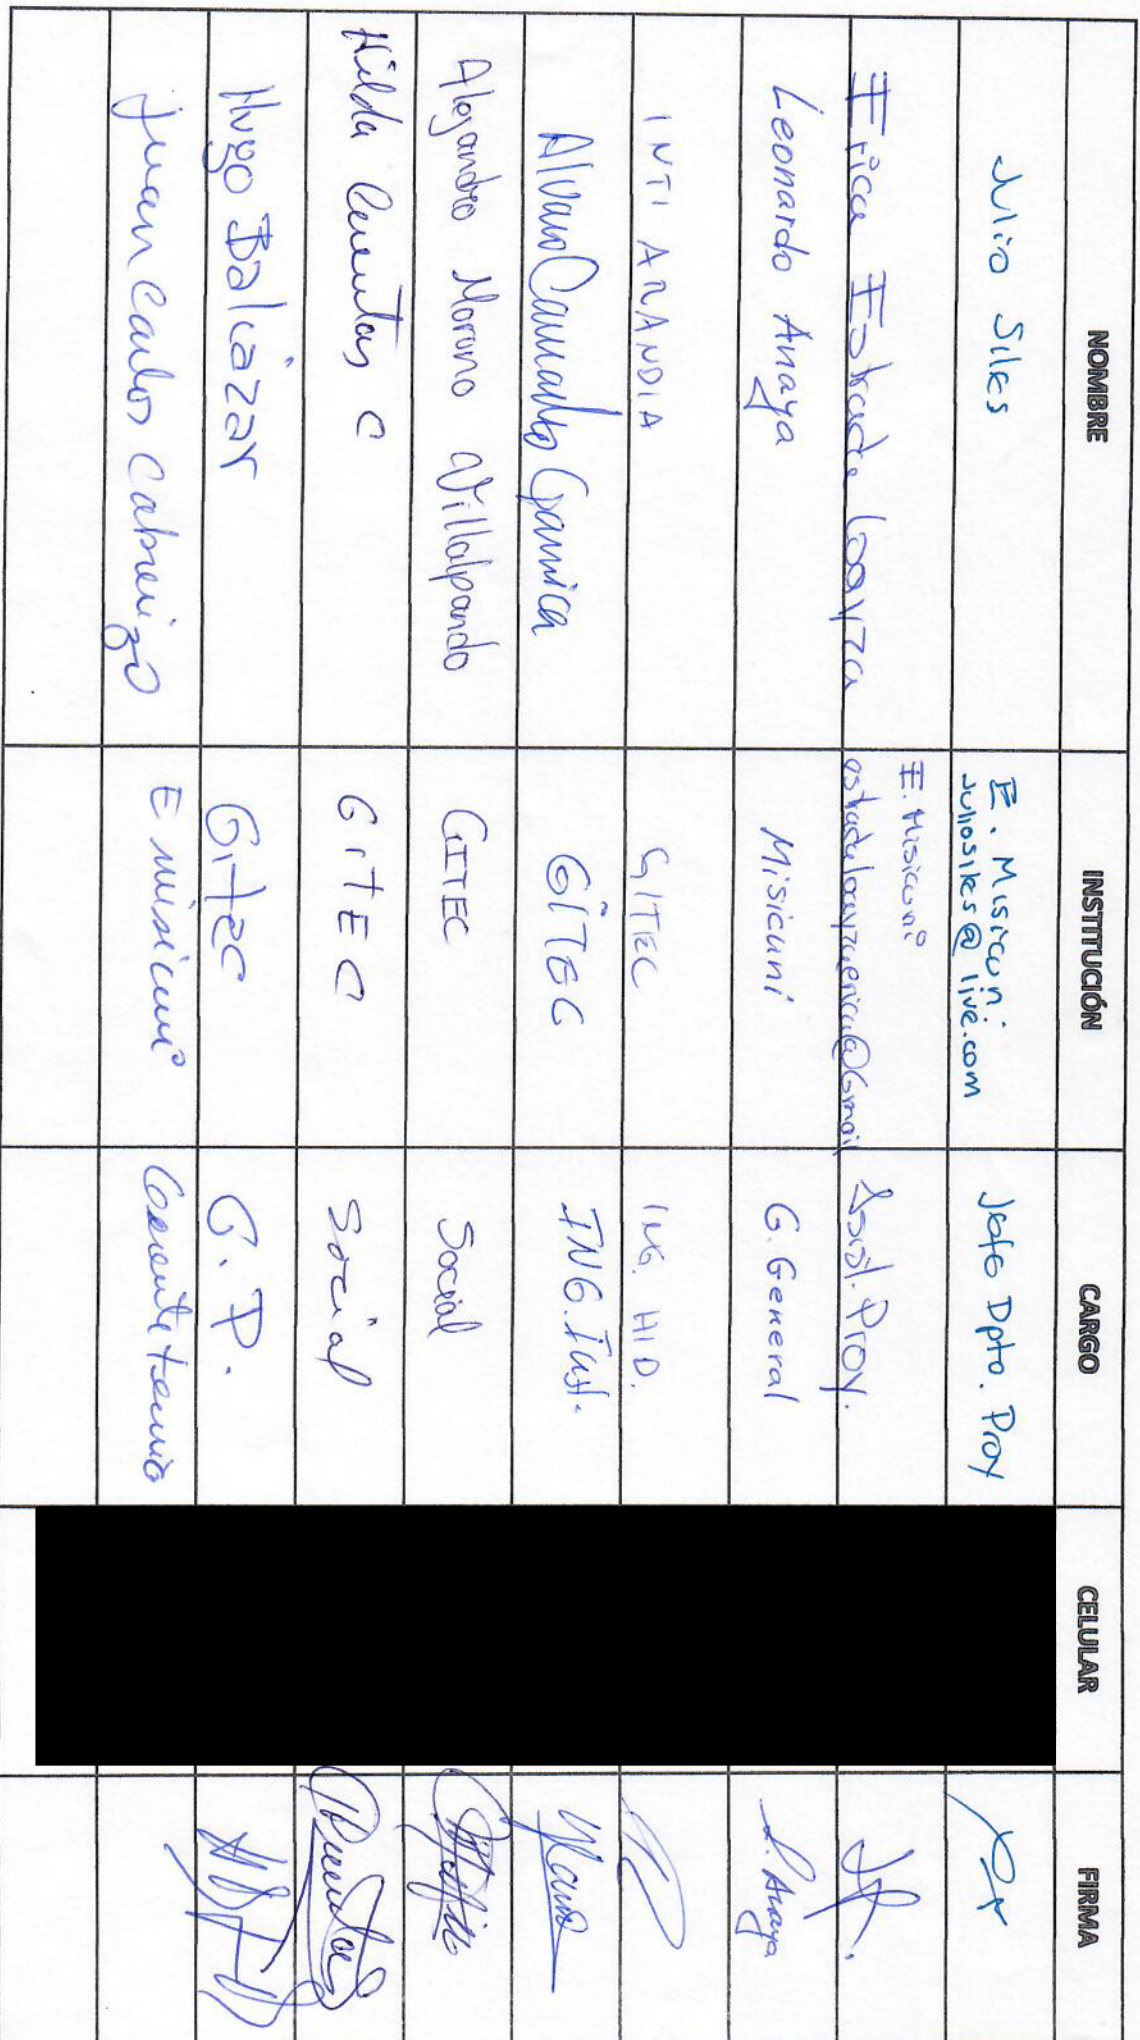 NOMBRE INSTITUCIÓN CARGO CELULAR FIRMA
Julio Siles E. Misicuni juliosiles@live.com Jefe Dpto. Proy
Erica Estrada Loayza E. Misicuni estradaloayzaerica@Gmail Asist. Proy.
Leonardo Anaya Misicuni G. General L. Anaya
INTI ARANDIA GITEC ING. HID.
Alvaro Camacho Garnica GITEC ING. Inst.
Alejandro Moreno Villalpando GITEC Social
Hilda Cuentas C GITEC Social
Hugo Balcazar Gitec G.P.
Juan Carlos Cabrerizo E misicuni Gerente tecnico